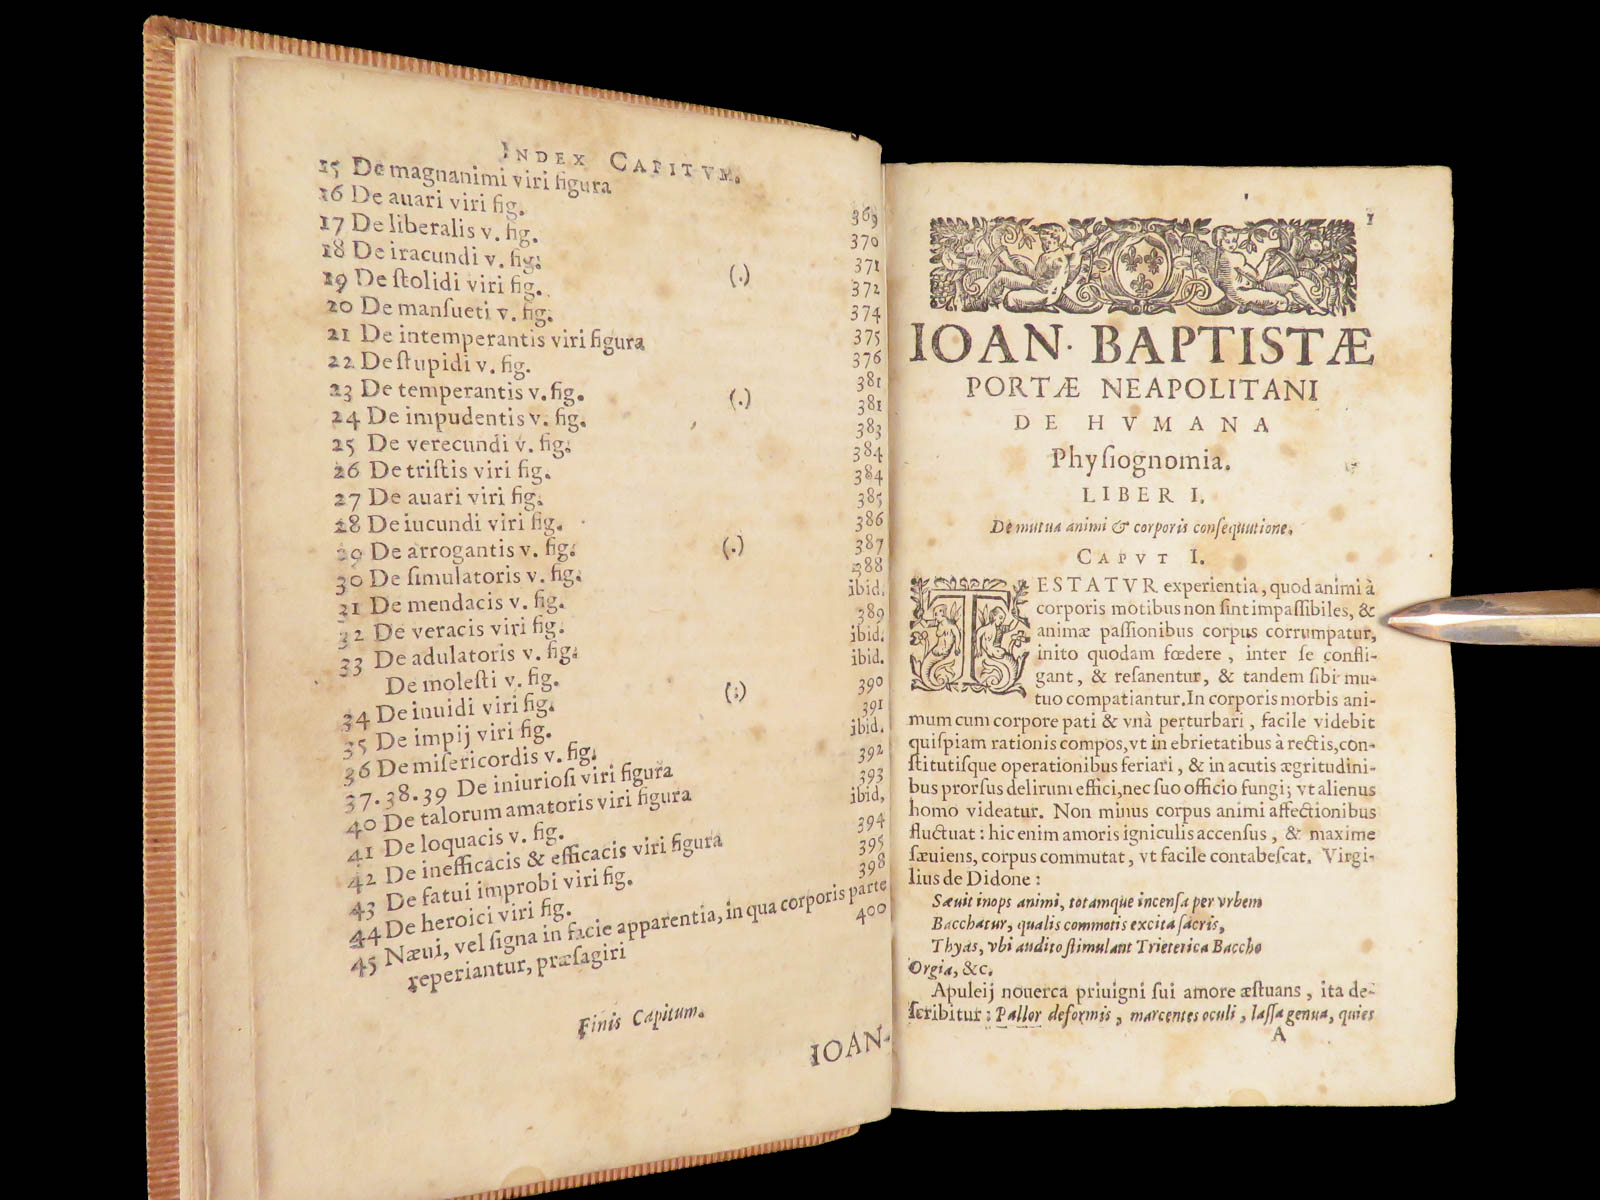 INDEX CAPITVM.
15 De magnanimi viri figura 369
16 De auari viri fig. 370
17 De liberalis v. fig. 371
18 De iracundi v. fig. 372
19 De ſtolidi viri fig. (.) 374
20 De manſueti v. fig. 375
21 De intemperantis viri figura 376
22 De ſtupidi v. fig. 381
23 De temperantis v. fig. 381
24 De impudentis v. fig. (.) 383
25 De verecundi v. fig. 384
26 De triſtis viri fig. 384
27 De auari viri fig. 385
28 De iucundi viri fig. 386
29 De arrogantis v. fig. (.) 387
30 De ſimulatoris v. fig. 388
31 De mendacis v. fig. ibid.
32 De veracis viri fig. 389
33 De adulatoris v. fig. ibid.
De moleſti v. fig. ibid.
34 De inuidi viri fig. (.) 390
35 De impij viri fig. 391
36 De miſericordis v. fig. ibid.
37.38.39 De iniurioſi viri figura 392
40 De talorum amatoris viri figura 393
41 De loquacis v. fig. ibid,
42 De inefficacis & efficacis viri figura 394
43 De fatui improbi viri fig. 395
44 De heroici viri fig. 398
45 Næui, vel ſigna in facie apparentia, in qua corporis parte
reperiantur, præſagiri 400
Finis Capitum.
IOAN-
1
IOAN. BAPTISTÆ
PORTÆ NEAPOLITANI
DE HVMANA
Phyſiognomia.
LIBER I.
De mutua animi & corporis conſequutione.
CAPVT I.
TESTATVR experientia, quod animi à
corporis motibus non ſint impaſſibiles, &
animæ paſſionibus corpus corrumpatur,
inito quodam fœdere, inter ſe confli-
gant, & reſanentur, & tandem ſibi mu-
tuo compatiantur. In corporis morbis ani-
mum cum corpore pati & vnà perturbari, facile videbit
quiſpiam rationis compos, vt in ebrietatibus à rectis, con-
ſtitutiſque operationibus feriari, & in acutis ægritudini-
bus prorſus delirum effici, nec ſuo officio fungi; vt alienus
homo videatur. Non minus corpus animi affectionibus
fluctuat: hic enim amoris igniculis accenſus, & maxime
ſæuiens, corpus commutat, vt facile contabeſcat. Virgi-
lius de Didone:
Sæuit inops animi, totamque incenſa per vrbem
Bacchatur, qualis commotis excita ſacris,
Thyas, vbi audito ſtimulant Trieterica Baccho
Orgia, &c.
Apuleij nouerca priuigni ſui amore æſtuans, ita de-
ſcribitur: Pallor deformis, marcentes oculi, laſſa genua, quies
A